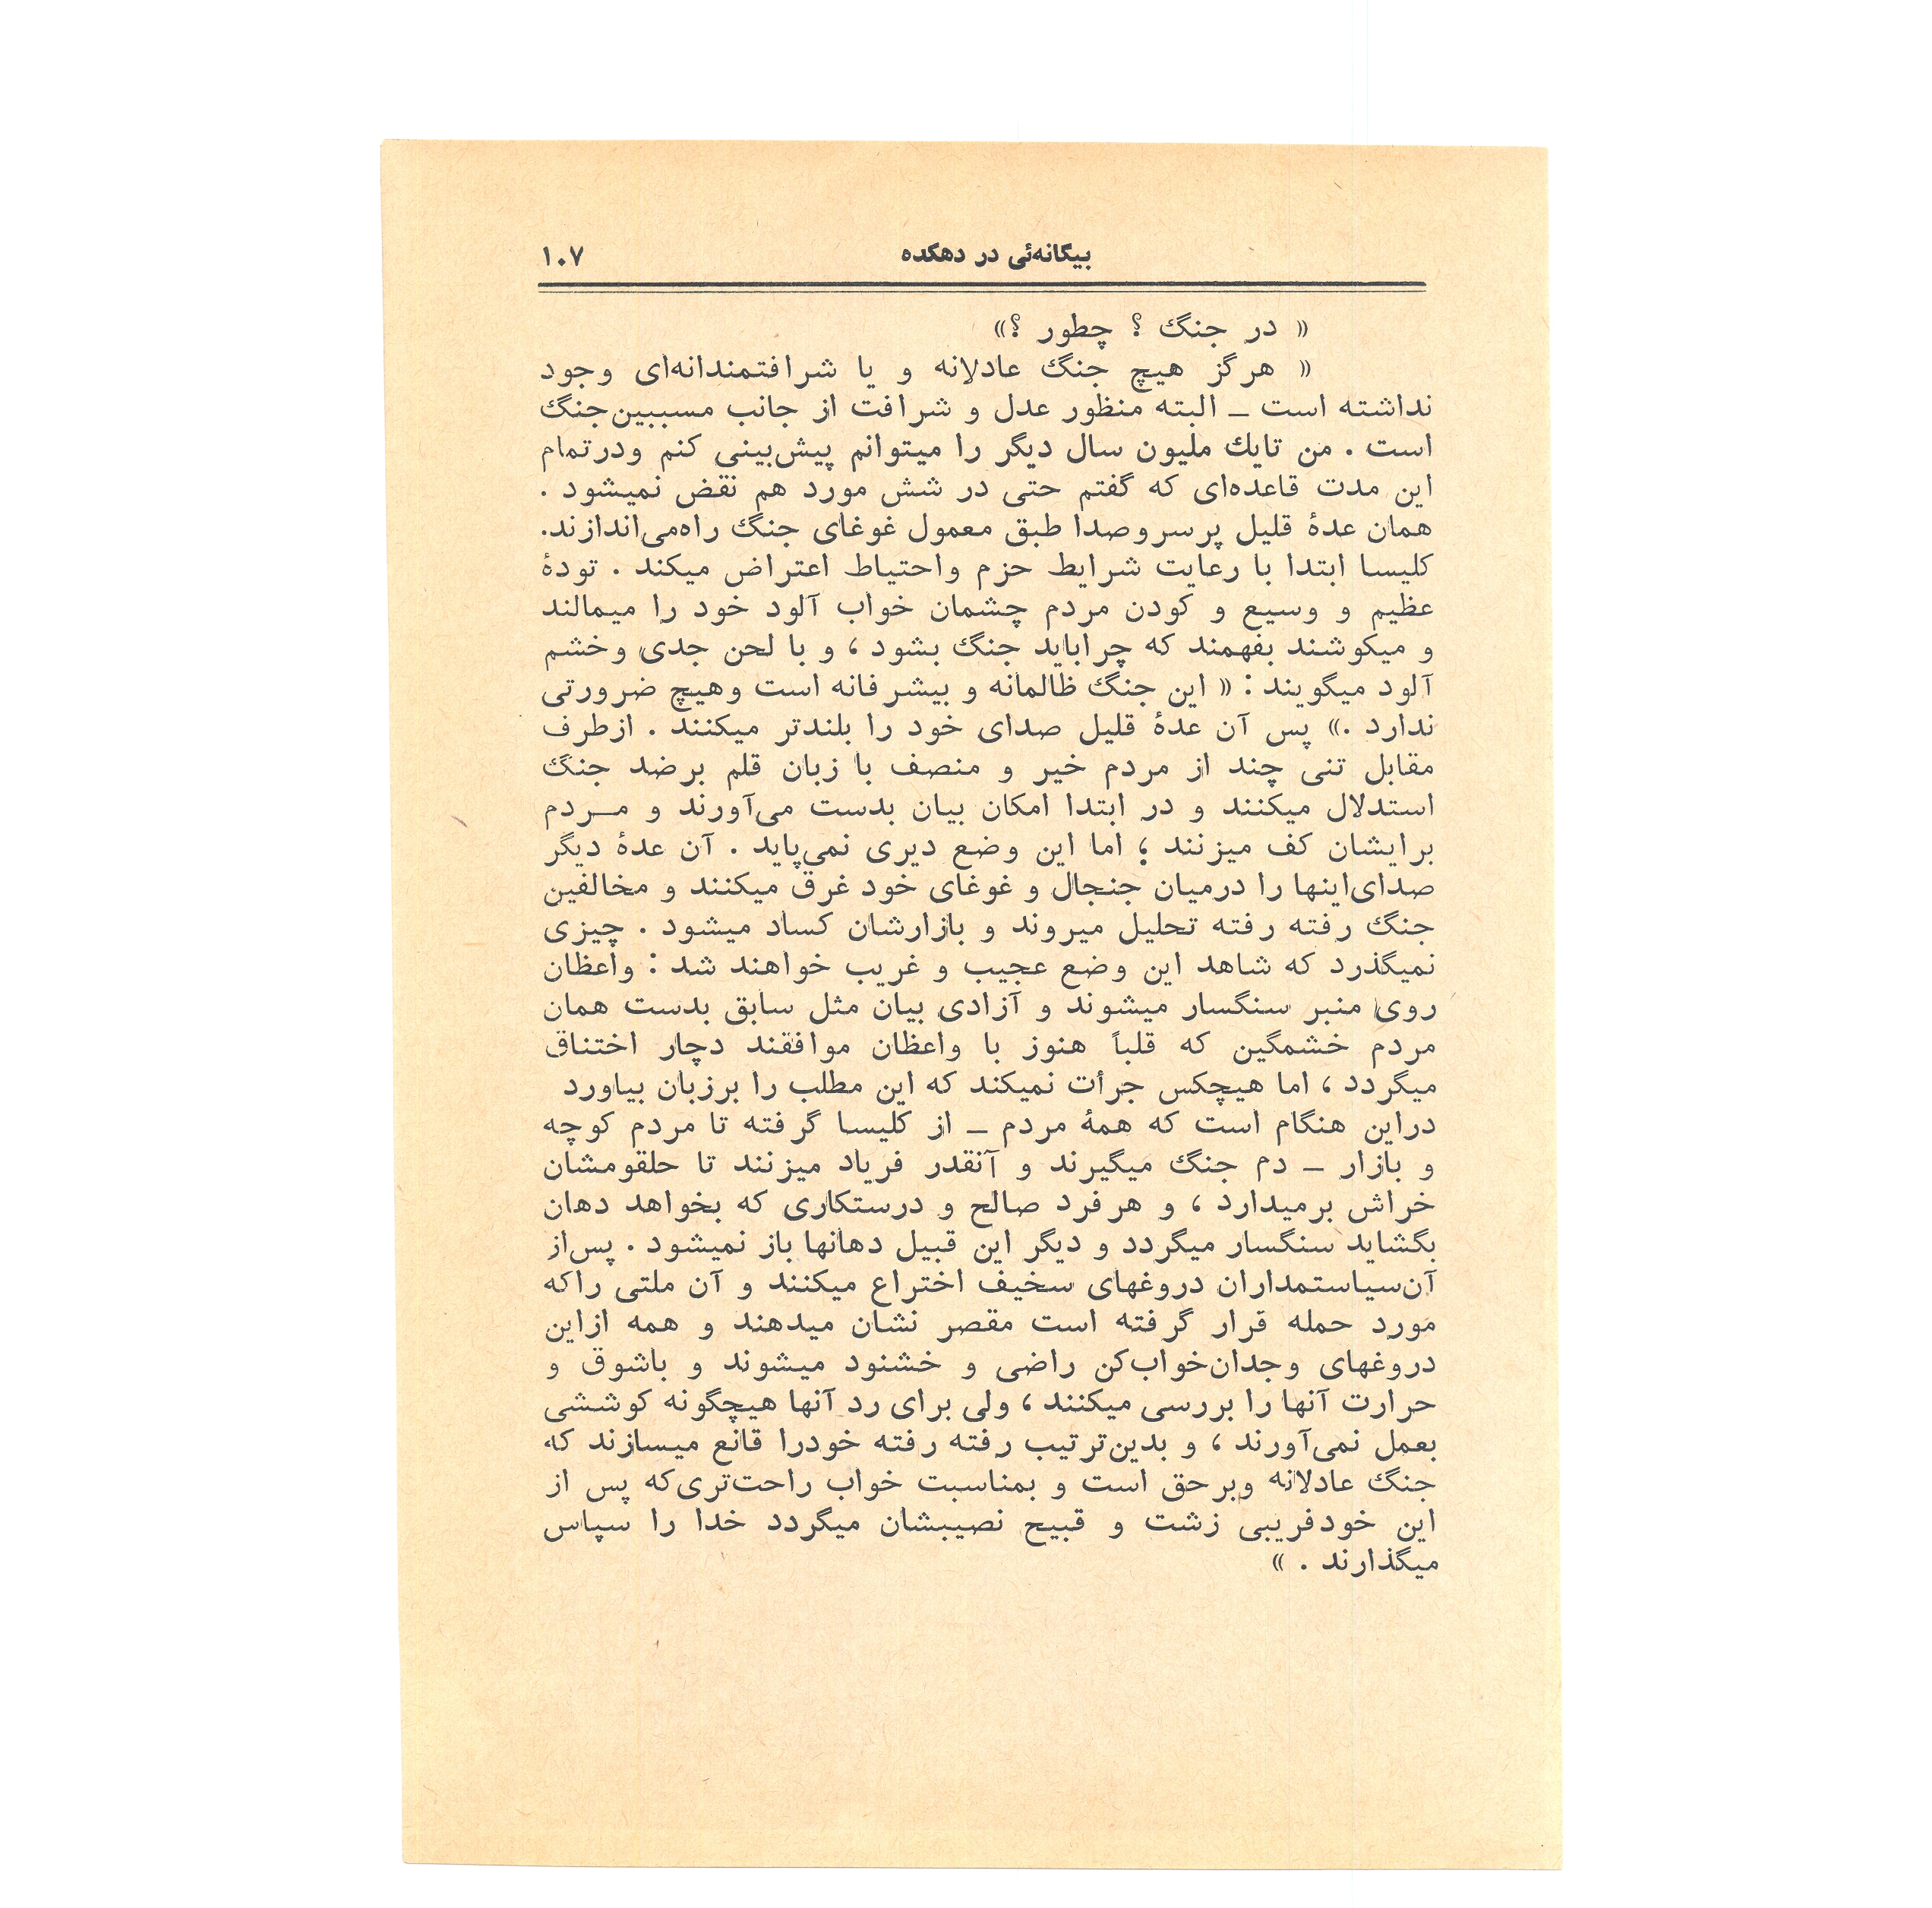 بیگانه‌ئی در دهکده ۱۰۷
« در جنگ ؟ چطور ؟»
« هرگز هیچ جنگ عادلانه و یا شرافتمندانه‌ای وجود
نداشته است ـ البته منظور عدل و شرافت از جانب مسببین جنگ
است . من تایك ملیون سال دیگر را میتوانم پیش‌بینی کنم ودرتمام
این مدت قاعده‌ای که گفتم حتی در شش مورد هم نقض نمیشود .
همان عدهٔ قلیل پرسروصدا طبق معمول غوغای جنگ راه‌می‌اندازند.
کلیسا ابتدا با رعایت شرایط حزم واحتیاط اعتراض میکند . تودهٔ
عظیم و وسیع و کودن مردم چشمان خواب آلود خود را میمالند
و میکوشند بفهمند که چراباید جنگ بشود ، و با لحن جدی وخشم
آلود میگویند : « این جنگ ظالمانه و بیشرفانه است وهیچ ضرورتی
ندارد .» پس آن عدهٔ قلیل صدای خود را بلندتر میکنند . ازطرف
مقابل تنی چند از مردم خیر و منصف با زبان قلم برضد جنگ
استدلال میکنند و در ابتدا امکان بیان بدست می‌آورند و مـردم
برایشان کف میزنند ؛ اما این وضع دیری نمی‌پاید . آن عدهٔ دیگر
صدای‌اینها را درمیان جنجال و غوغای خود غرق میکنند و مخالفین
جنگ رفته رفته تحلیل میروند و بازارشان کساد میشود . چیزی
نمیگذرد که شاهد این وضع عجیب و غریب خواهند شد : واعظان
روی منبر سنگسار میشوند و آزادی بیان مثل سابق بدست همان
مردم خشمگین که قلباً هنوز با واعظان موافقند دچار اختناق
میگردد ، اما هیچکس جرأت نمیکند که این مطلب را برزبان بیاورد
دراین هنگام است که همهٔ مردم ـ از کلیسا گرفته تا مردم کوچه
و بازار ـ دم جنگ میگیرند و آنقدر فریاد میزنند تا حلقومشان
خراش برمیدارد ، و هرفرد صالح و درستکاری که بخواهد دهان
بگشاید سنگسار میگردد و دیگر این قبیل دهانها باز نمیشود . پس‌از
آن‌سیاستمداران دروغهای سخیف اختراع میکنند و آن ملتی راکه
مورد حمله قرار گرفته است مقصر نشان میدهند و همه ازاین
دروغهای وجدان‌خواب‌کن راضی و خشنود میشوند و باشوق و
حرارت آنها را بررسی میکنند ، ولی برای رد آنها هیچگونه کوششی
بعمل نمی‌آورند ، و بدین‌ترتیب رفته رفته خودرا قانع میسازند که
جنگ عادلانه وبرحق است و بمناسبت خواب راحت‌تری‌که پس از
این خودفریبی زشت و قبیح نصیبشان میگردد خدا را سپاس
میگذارند . »